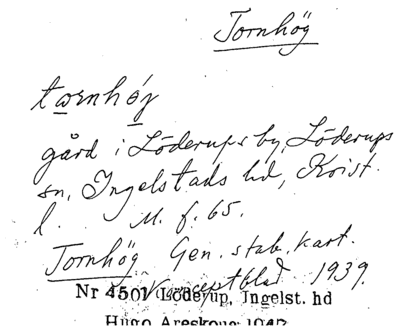 Tornhög
tornhój
gård i Löderups by, Löderups
sn, Ingelstads hd, Krist.
l. M. f. 65.
Tornhög Gen. stab. kart.
Konceptblad 1939.
Nr 4501 Löderup, Ingelst. hd
Hugo Areskoug 1942